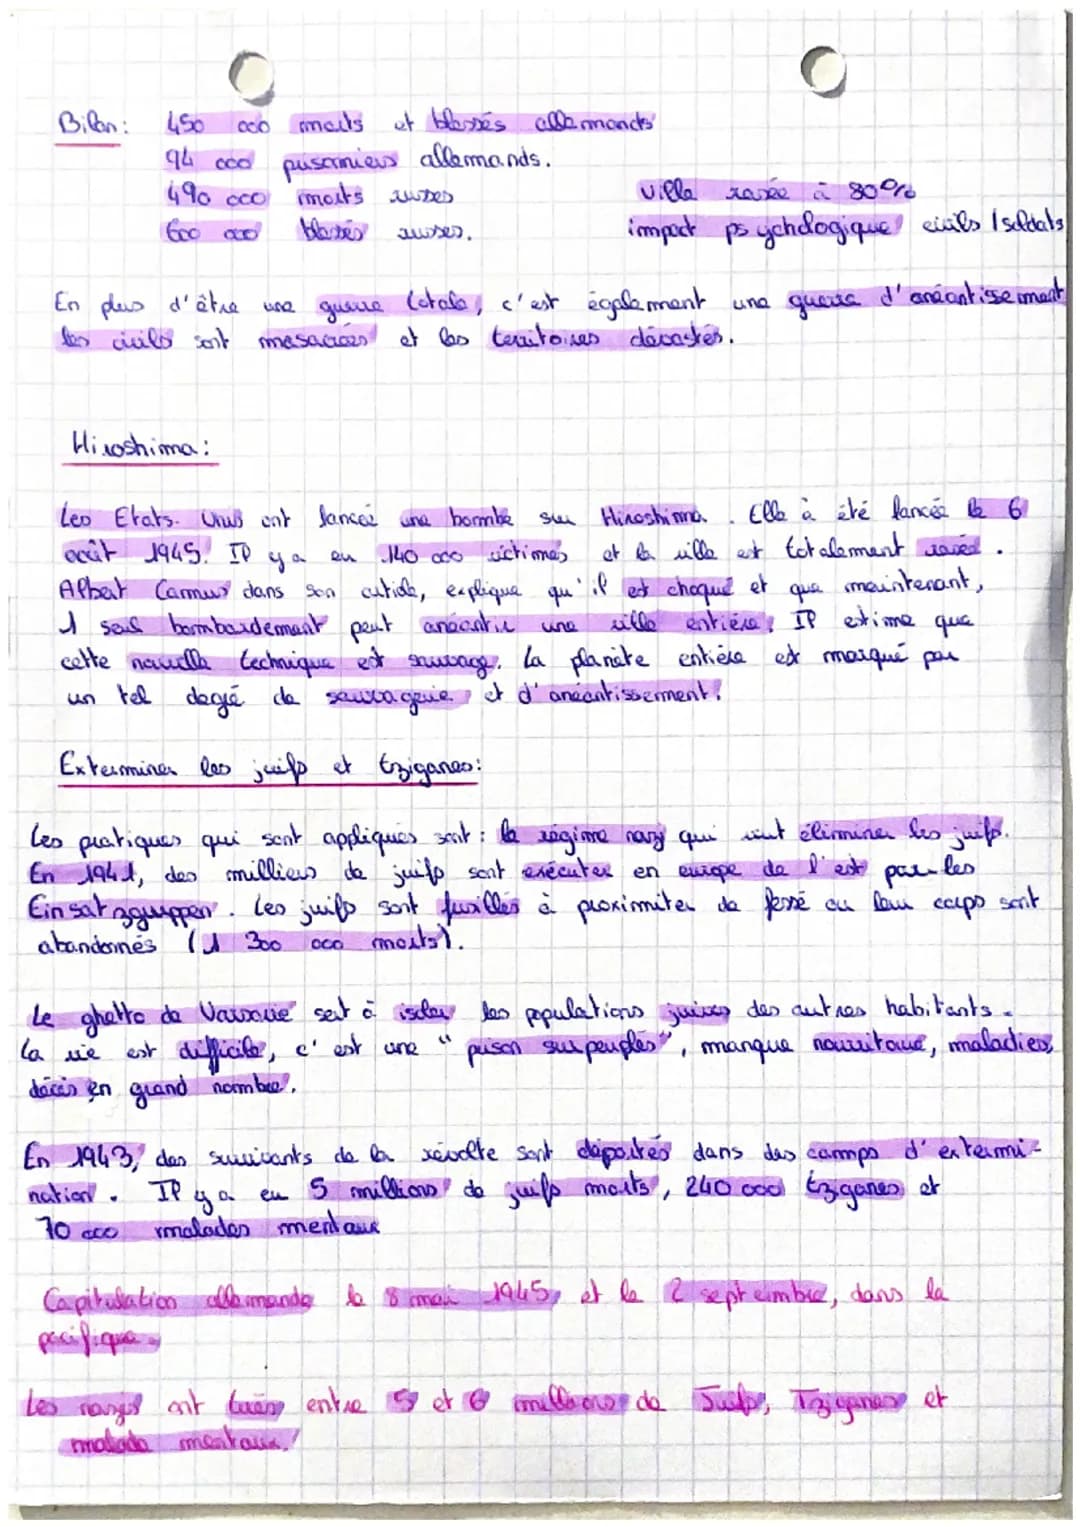 Bilan: 450 000 morts et blessés allemands
94 000 prisonniers allemands.
490 000 morts russes
600 000 blessés russes.
ville rasée à 80%
impact psychologique civils / soldats
En plus d'être une guerre totale, c'est également une guerre d'anéantissement
les civils sont massacrés et les territoires dévastés.
Hiroshima:
Les Etats-Unis ont lancée une bombe sur Hiroshima. Elle à été lancée le 6
août 1945. Il y a eu 140 000 victimes et la ville est totalement rasée.
Albert Camus dans son article, explique qu'il est choqué et que maintenant,
1 seul bombardement peut anéantir une ville entière. Il estime que
cette nouvelle technique est sauvage. La planète entière est marqué par
un tel degré de sauvagerie et d'anéantissement.
Exterminer les juifs et tziganes:
Les pratiques qui sont appliqués sont: le régime nazy qui veut éliminer les juifs.
En 1941, des milliers de juifs sont exécuter en europe de l'est par les
Einsatzgruppen. Les juifs sont fusillés à proximiter de fossé ou leur corps sont
abandonnés (1 300 000 morts).
Le ghetto de Varsovie sert à isoler les populations juives des autres habitants.
La vie est difficile, c'est une "prison surpeuplés", manque nourriture, maladies,
décès en grand nombre.
En 1943, des survivants de la révolte sont déportés dans des camps d'extermi-
nation. Il y a eu 5 millions de juifs morts, 240 000 tziganes et
70 000 malades mentaux
Capitulation allemande le 8 mai 1945, et le 2 septembre, dans la
pacifique.
Les nazys ont tués entre 5 et 6 millions de Juifs, Tziganes et
malade mentaux.